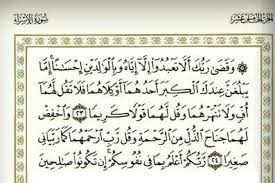 سُورَةُ الإِسْرَاء الجُزْءُ الخَامِسَ عَشَر
۞ وَقَضَىٰ رَبُّكَ أَلَّا تَعْبُدُوٓا۟ إِلَّآ إِيَّاهُ وَبِٱلْوَٰلِدَيْنِ إِحْسَٰنًا ۚ إِمَّا
يَبْلُغَنَّ عِندَكَ ٱلْكِبَرَ أَحَدُهُمَآ أَوْ كِلَاهُمَا فَلَا تَقُل لَّهُمَآ
أُفٍّ وَلَا تَنْهَرْهُمَا وَقُل لَّهُمَا قَوْلًا كَرِيمًا ٢٣ وَٱخْفِضْ
لَهُمَا جَنَاحَ ٱلذُّلِّ مِنَ ٱلرَّحْمَةِ وَقُل رَّبِّ ٱرْحَمْهُمَا كَمَا رَبَّيَانِى
صَغِيرًا ٢٤ رَّبُّكُمْ أَعْلَمُ بِمَا فِى نُفُوسِكُمْ ۚ إِن تَكُونُوا۟ صَٰلِحِينَ